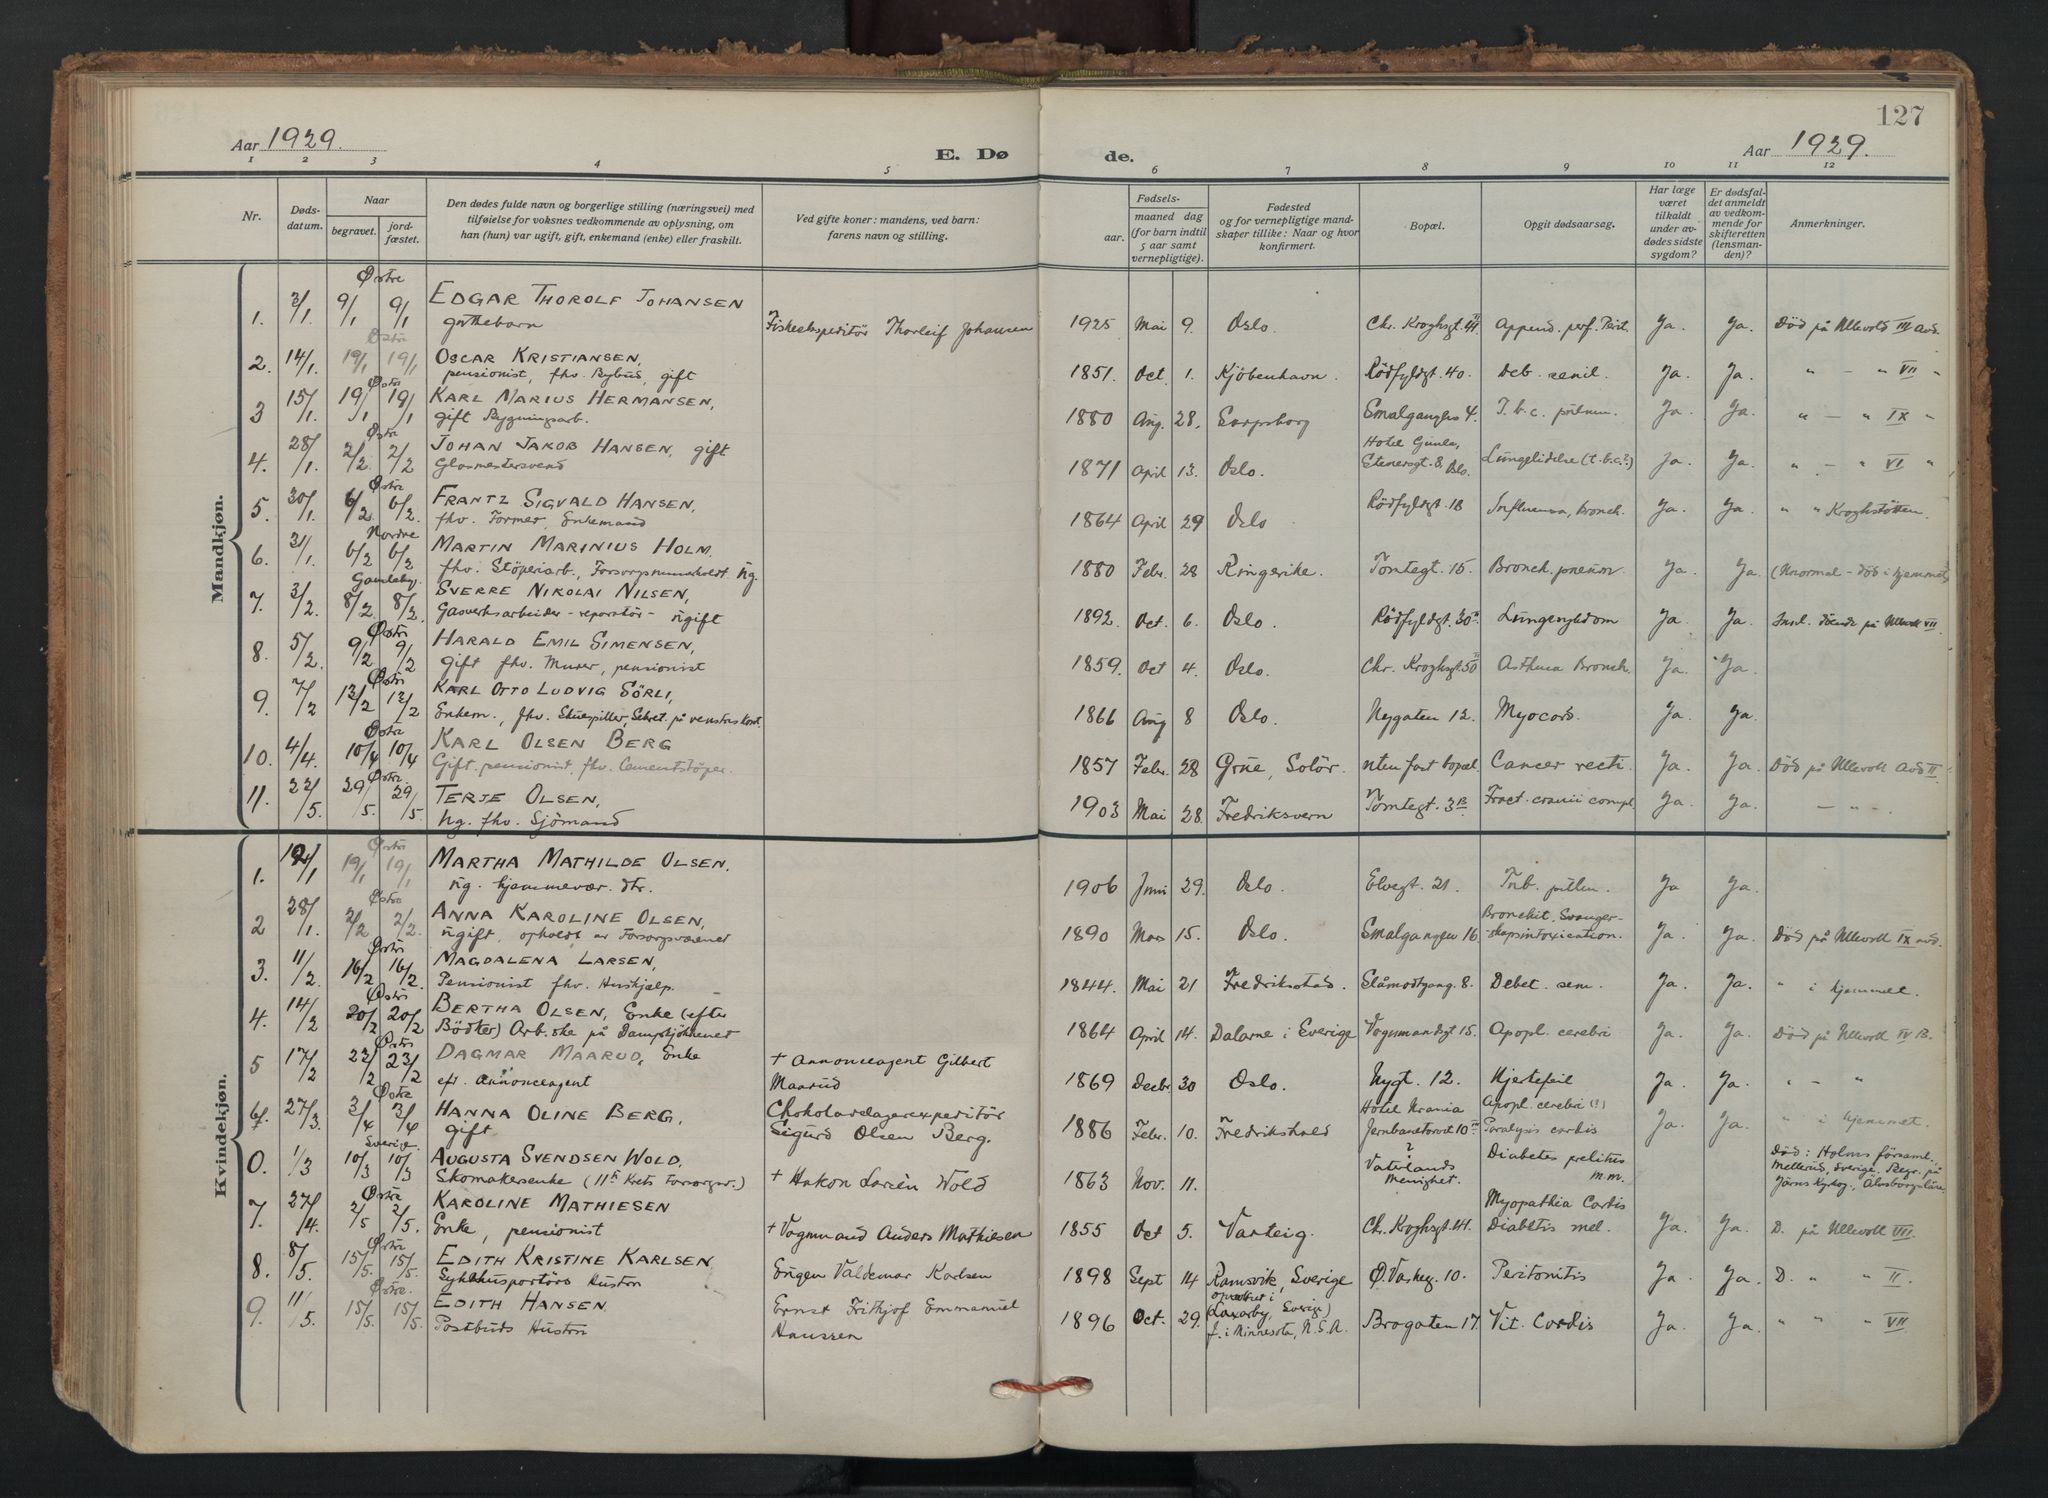 127
Aar 1929.
E. Dø
de.
Aar 1929.
1 2 3 4 5 6 7 8 9 10 11 12
Nr.
Døds-
datum.
Naar
begravet.
jord-
fæstet.
Den dødes fulde navn og borgerlige stilling (næringsvei) med
tilføielse for voksnes vedkommende av oplysning, om
han (hun) var ugift, gift, enkemand (enke) eller fraskilt.
Ved gifte koner: mandens, ved barn:
farens navn og stilling.
Fødsels-
aar.
maaned dag
(for barn indtil
5 aar samt
vernepligtige).
Fødested
og for vernepligtige mand-
skaper tillike: Naar og hvor
konfirmert.
Bopæl.
Opgit dødsaarsag.
Har læge
været
tilkaldt
under av-
dødes sidste
sygdom?
Er dødsfal-
det anmeldt
av vedkom-
mende for
skifteretten
(lensman-
den)?
Anmerkninger.
Mandkjøn.
Østre
1. 3/1. 9/1 9/1 EDGAR THOROLF JOHANSEN
guttebarn Fiskeekspeditör Thorleif Johansen 1925 Mai 9. Oslo. Chr. Kroghsgt. 44 Append. perf. Perit. Ja. Ja. Död på Ullevold III avd.
Østre
2. 14/1. 19/1 19/1 OSCAR KRISTIANSEN,
pensionist, fhv. Bybud, gift 1851. Oct 1. Kjöbenhavn. Rödfyldgt. 40. Deb. senil. Ja. Ja. " - " VII "
Østre
3 15/1. 19/1 19/1 KARL MARIUS HERMANSEN,
gift Bygningsarb. 1880 Aug. 28. Sarpsborg Smalgangen 4. T.b.c. pulm. Ja. Ja. " - " IX "
Østre
4. 28/1. 2/2 2/2 JOHAN JAKOB HANSEN, gift
Glasmestersvend 1871 April 13. Oslo. Hotel Gunla,
Stenersgt. 8, Oslo. Lungelidelse (t.b.c.?) Ja Ja. " - " VI "
Østre
5. 30/1. 6/2. 6/2. FRANTZ SIGVALD HANSEN,
fhv. Former, Enkemand 1864 April 29 Oslo Rödfyldgt. 18 Influensa, Bronch. Ja Ja " " Kroghstötten.
Nordre
6. 31/1. 6/2 6/2 MARTIN MARINIUS HOLM.
fhv. Stöperiarb., Forsorgsunderholdt ug. 1880 Febr. 28 Ringerike. Tomtegt. 15. Bronch. pneum Ja. Ja. (Unormal - Död i hjemmet)
Gamleby.
7. 3/2. 8/2 8/2. SVERRE NIKOLAI NILSEN,
Gasverksarbeider - reparatör - ugift 1892. Oct. 6. Oslo Rödfyldgt. 30 Lungesykdom Ja. Ja. Insl. döende på Ullevoll VII.
Østre
8. 5/2. 9/2 9/2 HARALD EMIL SIMENSEN,
gift fhv. Murer, pensionist 1859. Oct 4. Oslo. Chr. Kroghsgt. 50 Asthma Bronch. Ja. Ja.
Østre
9. 7/2 13/2 13/2 KARL OTTO LUDVIG SÖRLI,
Enkem., fhv. Skuespiller, Sekret. på venstres kont. 1866 Aug 8 Oslo. Nygaten 12. Myocard. Ja Ja.
Østre
10. 4/4. 10/4 10/4 KARL OLSEN BERG
Gift, pensionist, fhv. Cementstöper. 1857 Febr. 28 Grue, Solör. uten fast bopæl. Cancer recti. Ja. Ja. Död på Ullevoll Avd II.
Østre
11. 22/5. 29/5. 29/5. TERJE OLSEN,
Ug. fhv. Sjömand 1903 Mai 28. Fredriksvern Tomtegt. 3B Fract. cranii compl. Ja Ja. - " -
Kvindekjøn.
Østre
1. 12/1 19/1 19/1 MARTHA MATHILDE OLSEN.
ug. hjemmevær. dtr. 1906 Juni 29. Oslo. Elvegt. 21. Tub. pulm. Ja Ja.
Østre
2 28/1. 2/2 2/2. ANNA KAROLINE OLSEN,
ugift, opholdt av Forsorgsvæsenet 1890 Mars 15. Oslo. Smalgangen 16 Bronchit, Svanger-
-skapsintoxication. Ja. Ja. Död på Ullevoll IX avd.
Østre
3. 11/2. 16/2 16/2. MAGDALENA LARSEN,
Pensionist fhv. Hushjælp. 1844. Mai 21 Fredrikstad. Slåmodtgang. 8. Debet. sen. Ja. Ja. " i hjemmet.
Østre
4. 14/2 20/2 20/2 BERTHA OLSEN, Enke (efter
Bödker) Arb.ske på Dampkjökkenet 1864 April 14. Dalarne i Sverige Vognmandsgt 15. Apopl. cerebri Ja. Ja. Död på Ullevoll IV B.
Østre
5 17/2 23/2 23/2 DAGMAR MAARUD, Enke
eft. annonceagent + Annonceagent Gilbert
Maarud 1869 Decbr 30 Oslo. Nygt. 12. Hjertefeil Ja. Ja. " - "
Østre
6. 27/3. 3/4 3/4 HANNA OLINE BERG,
gift Chokoladelagerexpeditör
Sigurd Olsen Berg. 1886 Febr. 10. Fredrikshald Hotel Urania
Jernbanetorvet 10 Apopl. cerebri (?)
Paralysis cordis Ja. Ja. " i hjemmet.
Sverige.
0. 1/3 10/3 10/3 AUGUSTA SVENDSEN WOLD,
Skomakerenke (11te Krets Forsorgsv.) + Hakon Lorèn Wold 1863 Nov. 11. ?
Vaterlands
Menighet. Diabetes prelitus
m.m. Död: Holms församl.,
Mellerud, Sverige. Begr. på
Järns Kyrkog., Älvsborgslän.
Østre
7. 27/4. 2/5 2/5. KAROLINE MATHIESEN
Enke, pensionist + Vognmand Anders Mathiesen 1855 Oct 5. Varteig. Chr. Kroghsgt. 41. Myopathia Cordis
Diabetis mel. Ja. Ja. D. på Ullevoll VIII.
Østre
8. 8/5. 15/5. 15/5. EDITH KRISTINE KARLSEN,
Sykehusportörs Hustru Eugen Valdemar Karlsen 1898 Sept 14 Ramsvik, Sverige Ø. Vaskeg. 10. Peritonitis Ja. Ja. D. " " II.
Østre.
9. 11/5. 15/5. 15/5. EDITH HANSEN
Postbuds Hustru Ernst Frithjof Emmanuel
Hanssen 1896 Oct. 29. opvokset i
(Laxarby, Sverige)
f. i Minnesota, U.S.A. Brogaten 17. Vit. Cordis Ja. Ja. " " " VII